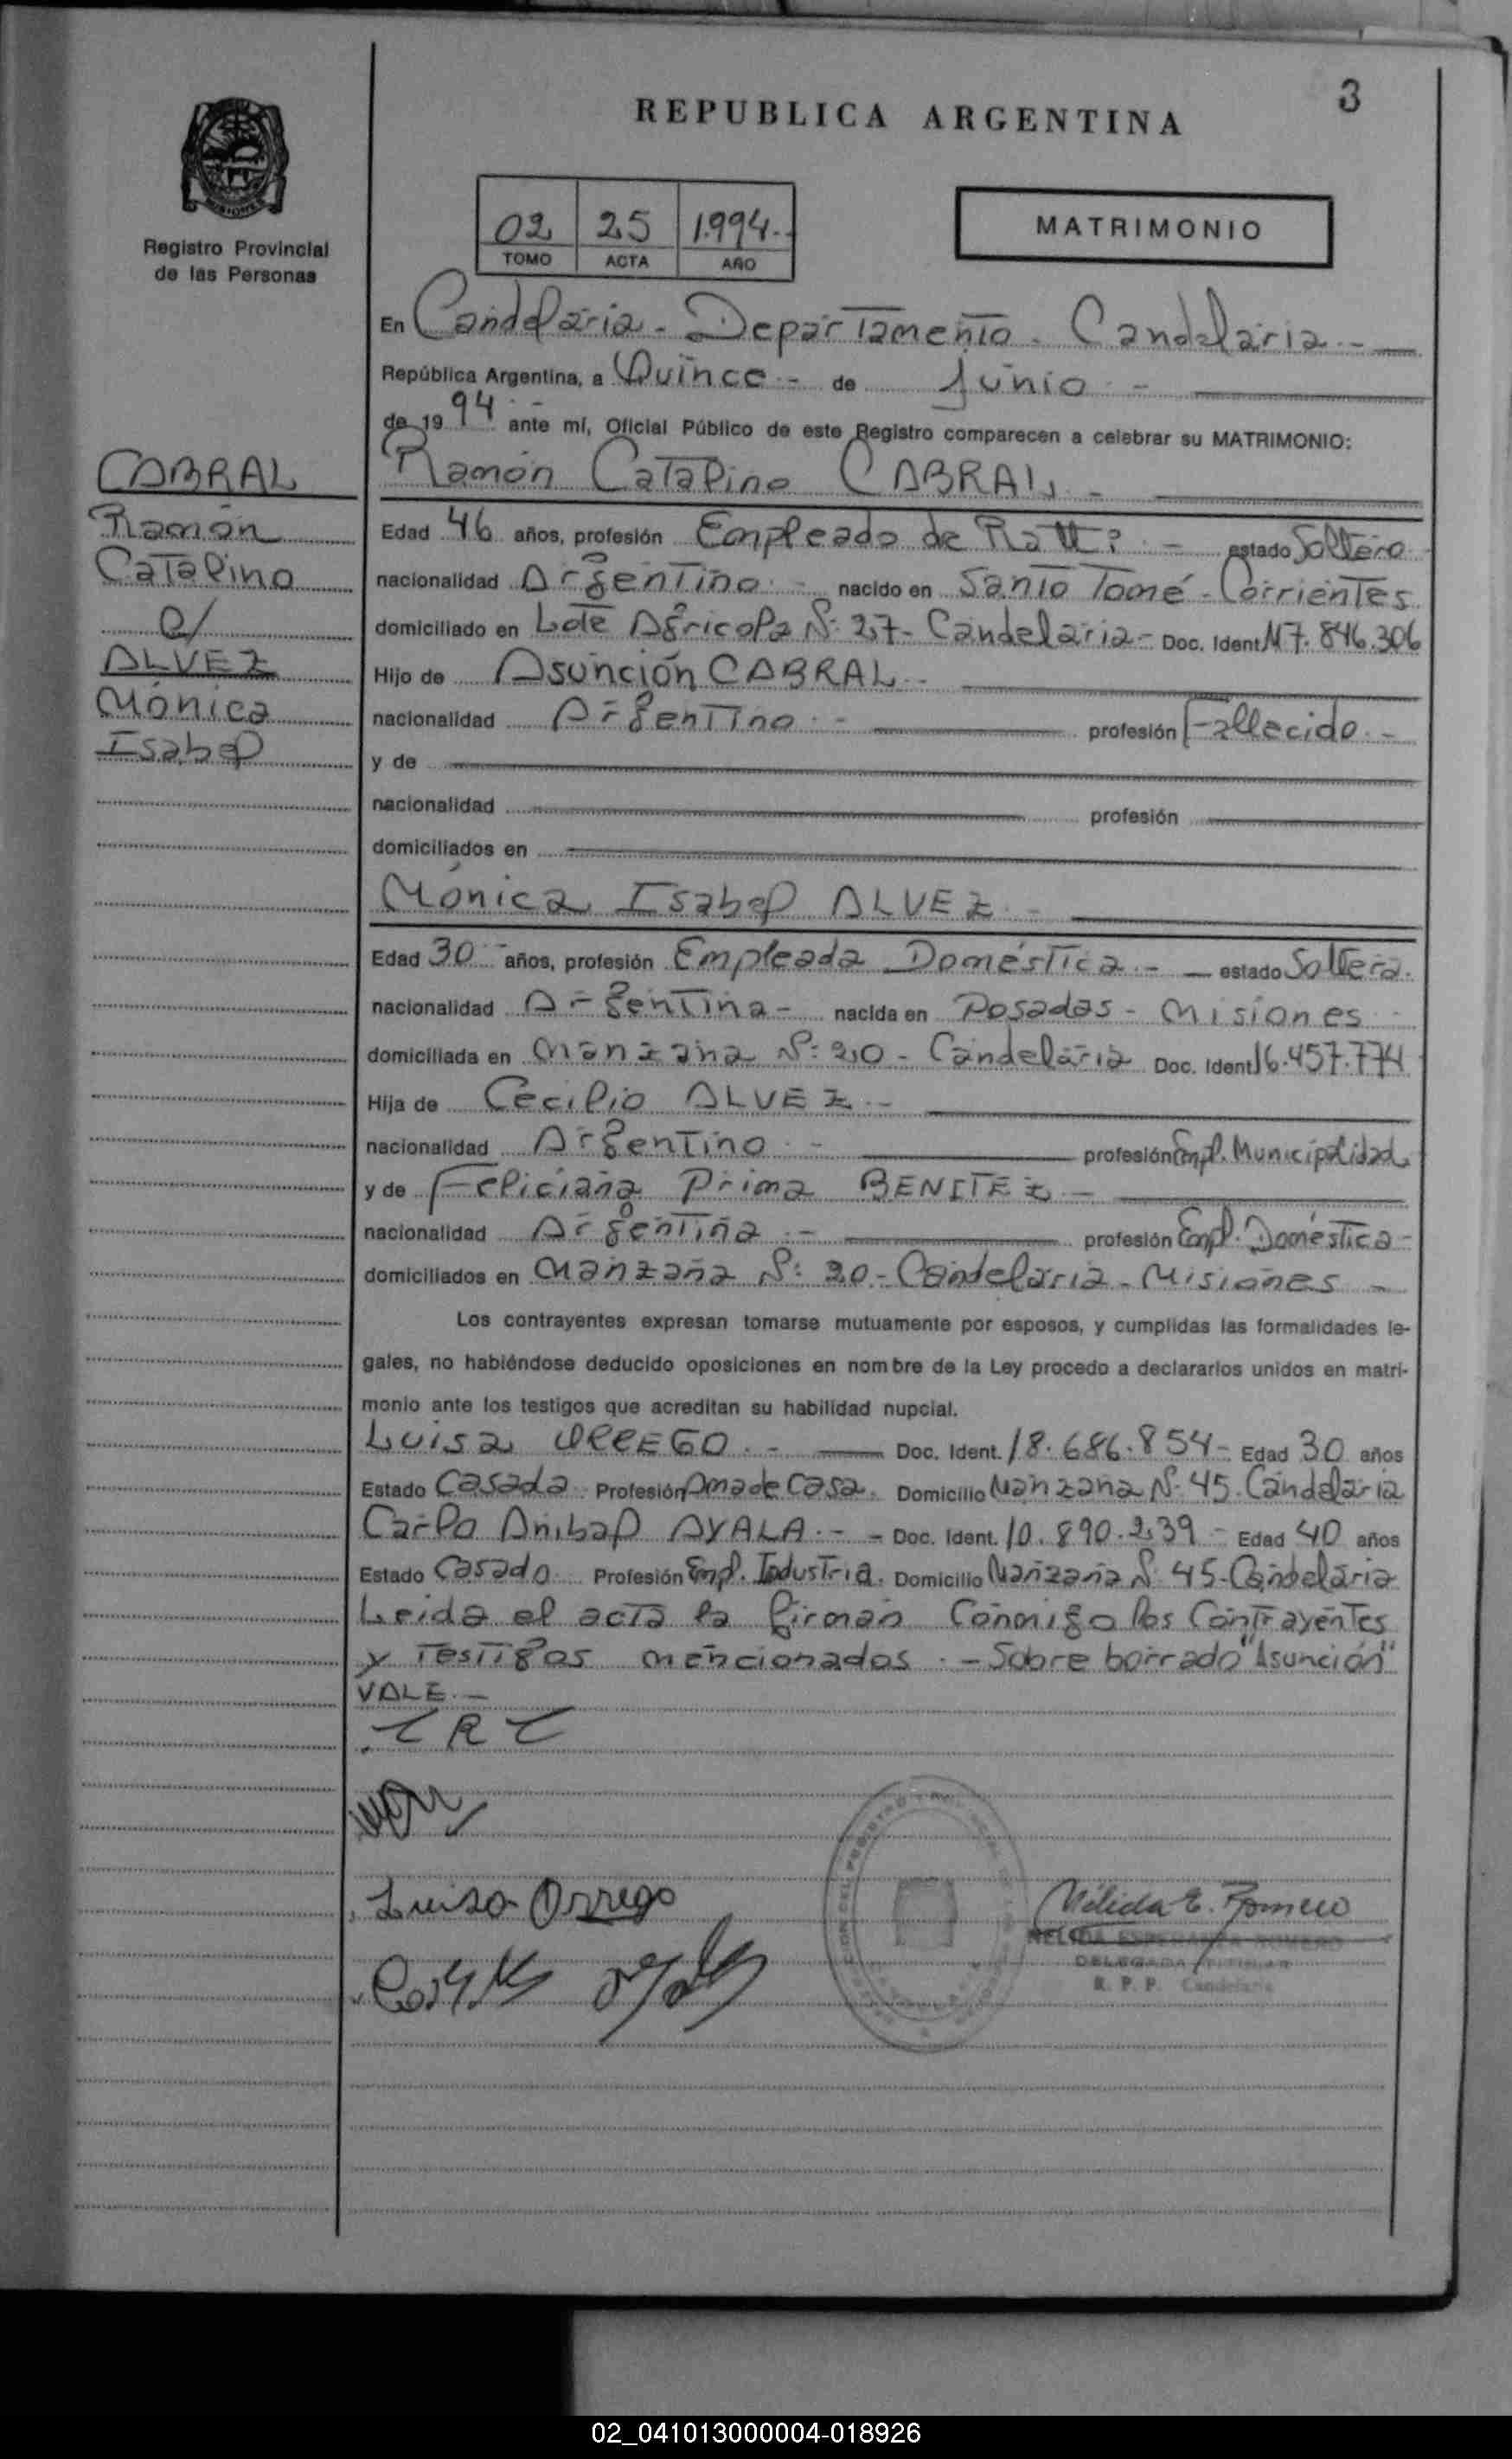 3
REPUBLICA ARGENTINA
MISIONES
Registro Provincial
de las Personas
02 25 1.994.-
TOMO ACTA AÑO
MATRIMONIO
En Candelaria - Departamento - Candelaria.-
República Argentina, a Quince.- de Junio.-
de 1994 ante mí, Oficial Público de este Registro comparecen a celebrar su MATRIMONIO:
CABRAL
Ramón
Catalino
c/
ALVEZ
Mónica
Isabel
Ramón Catalino CABRAL.-
Edad 46 años, profesión Empleado de .- estado Soltero
nacionalidad Argentino.- nacido en Santo Tomé - Corrientes
domiciliado en Lote Agricola Nº 27- Candelaria- Doc. Ident M7.846.306
Hijo de Asunción CABRAL.-
nacionalidad Argentino.- profesión Fallecido.-
y de
nacionalidad profesión
domiciliados en
Mónica Isabel ALVEZ.-
Edad 30 años, profesión Empleada Doméstica.- estado Soltera.
nacionalidad Argentina- nacida en Posadas - Misiones
domiciliada en Manzana Nº 20- Candelaria Doc. Ident 16.457.774
Hija de Cecilio ALVEZ.-
nacionalidad Argentino.- profesión Empl. Municipalidad
y de Feliciana Prima BENITEZ.-
nacionalidad Argentina.- profesión Empl. Doméstica-
domiciliados en Manzana Nº 20- Candelaria - Misiones -
Los contrayentes expresan tomarse mutuamente por esposos, y cumplidas las formalidades le-
gales, no habiéndose deducido oposiciones en nombre de la Ley procedo a declararlos unidos en matri-
monio ante los testigos que acreditan su habilidad nupcial.
Luisa ORREGO.- Doc. Ident. 18.686.854- Edad 30 años
Estado Casada Profesión Ama de Casa. Domicilio Manzana Nº 45. Candelaria
Carlo Anibal AYALA.- - Doc. Ident. 10.890.239- Edad 40 años
Estado Casado Profesión Empl. Industria. Domicilio Manzana Nº 45- Candelaria
Leida el acta la firman conmigo los Contrayentes
y Testigos mencionados.- Sobre borrado "Asunción"
VALE.-
CRC
Luisa Orrego
Nélida E. Romero
NELIDA ESPERANZA ROMERO
DELEGADA TITULAR
R. P. P. Candelaria
02_041013000004-018926